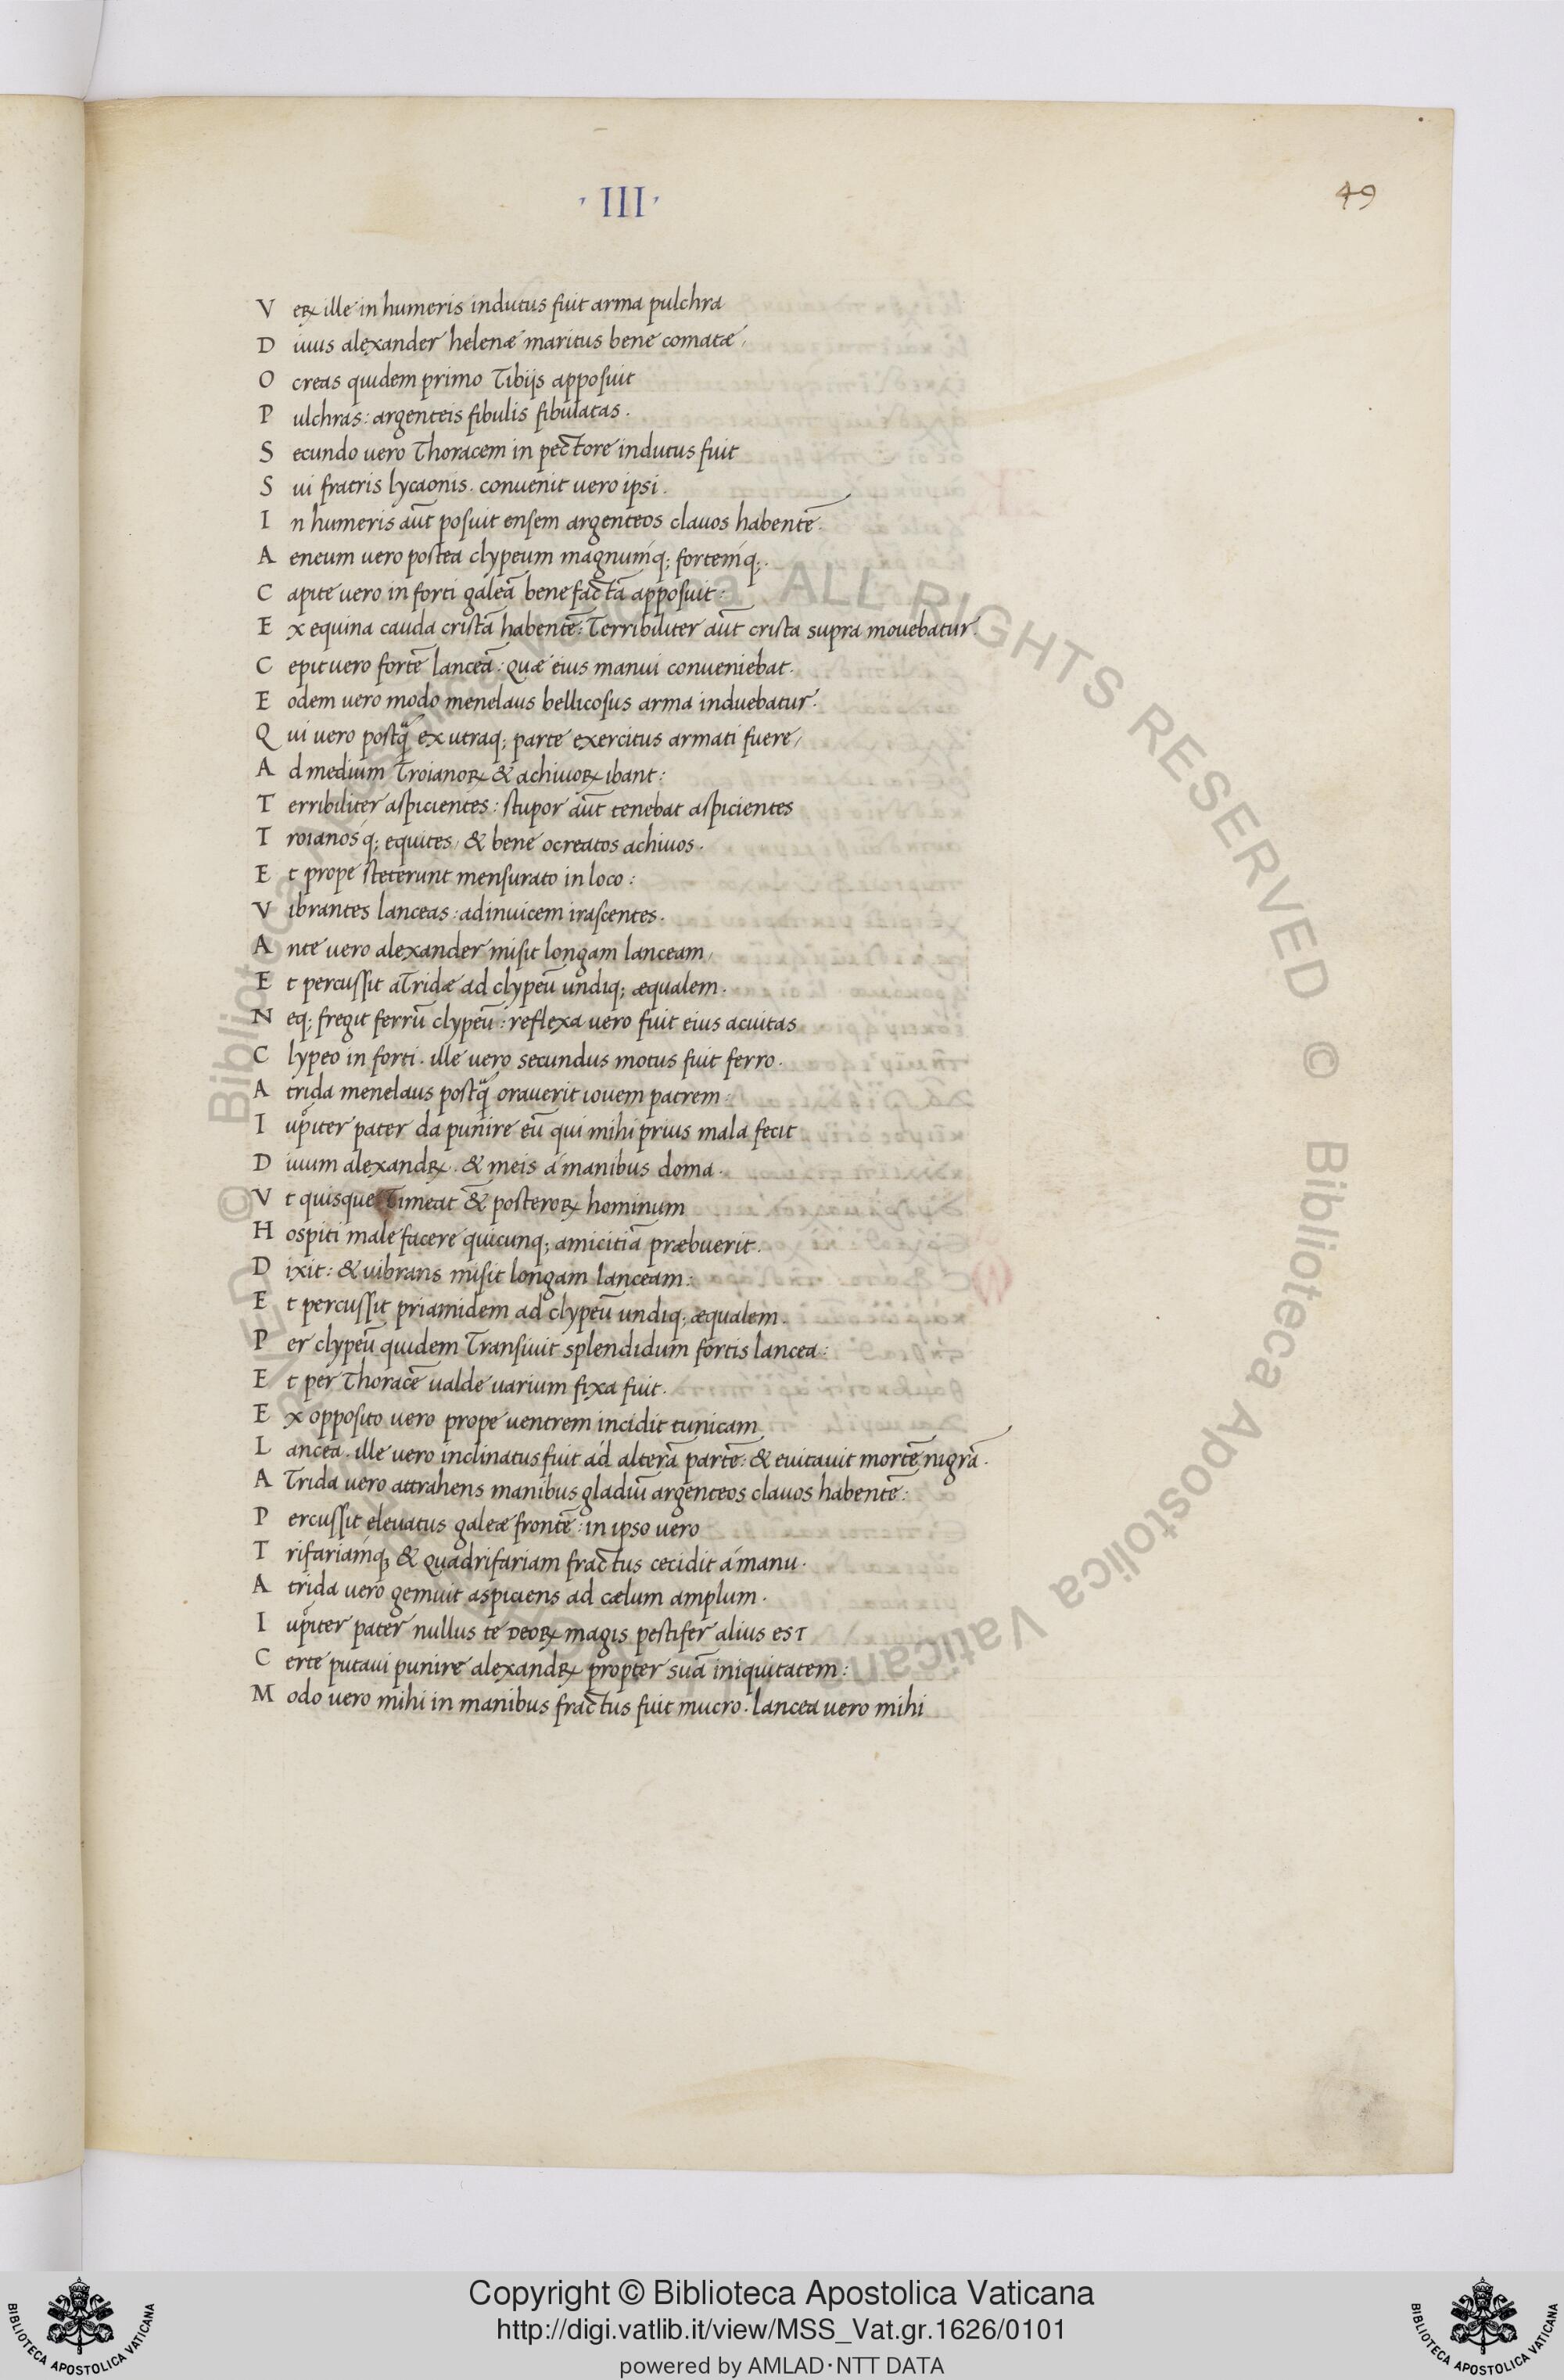 · III ·
49
V eꝝ ille in humeris indutus fuit arma pulchra
D iuus alexander helenæ maritus bene comatæ,
O creas quidem primo Tibijs apposuit
P ulchras: argenteis fibulis fibulatas.
S ecundo uero Thoracem in pectore indutus fuit
S ui fratris lycaonis. conuenit uero ipsi.
I n humeris aūt posuit ensem argenteos clauos habentē.
A eneum uero postea clypeum magnumq; fortemq;.
C apite uero in forti galeā bene factā apposuit:
E x equina cauda cristā habentē: Terribiliter aūt crista supra mouebatur.
C epit uero fortē lanceā: quæ eius manui conueniebat.
E odem uero modo menelaus bellicosus arma induebatur.
Q ui uero postq̄ ex utraq; parte exercitus armati fuere,
A d medium Troianoꝝ & achiuoꝝ ibant:
T erribiliter aspicientes: stupor aūt tenebat aspicientes
T roianosq; equites, & bene ocreatos achiuos.
E t prope steterunt mensurato in loco:
V ibrantes lanceas: adinuicem irascentes.
A nte uero alexander misit longam lanceam,
E t percussit aTridæ ad clypeū undiq; æqualem.
N eq; fregit ferrū clypeū: reflexa uero fuit eius acuitas
C lypeo in forti. ille uero secundus motus fuit ferro.
A trida menelaus postq̄ orauerit iouem patrem:
I up̄iter pater da punire eū qui mihi prius mala fecit
D iuum alexandꝝ. & meis á manibus doma.
V t quisque Timeat & posteroꝝ hominum
H ospiti male facere quicunq; amicitiā præbuerit.
D ixit: & uibrans misit longam lanceam:
E t percussit priamidem ad clypeū undiq; æqualem.
P er clypeū quidem Transiuit splendidum fortis lancea:
E t per Thoracē ualde uarium fixa fuit.
E x opposito uero prope uentrem incidit tunicam
L ancea. ille uero inclinatus fuit ad alterā partē: & euitauit mortē nigrā.
A Trida uero attrahens manibus gladiū argenteos clauos habentē:
P ercussit eleuatus galeæ frontē: in ipso uero
T rifariamq; & quadrifariam fractus cecidit á manu.
A trida uero gemuit aspiciens ad cælum amplum.
I up̄iter pater nullus te deoꝝ magis pestifer alius est
C erte putaui punire alexandꝝ propter suā iniquitatem:
M odo uero mihi in manibus fractus fuit mucro. lancea uero mihi
© Biblioteca Apostolica Vaticana ALL RIGHTS RESERVED © Biblioteca Apostolica Vaticana
Copyright © Biblioteca Apostolica Vaticana
http://digi.vatlib.it/view/MSS_Vat.gr.1626/0101
powered by AMLAD·NTT DATA
BIBLIOTECA APOSTOLICA VATICANA
BIBLIOTECA APOSTOLICA VATICANA